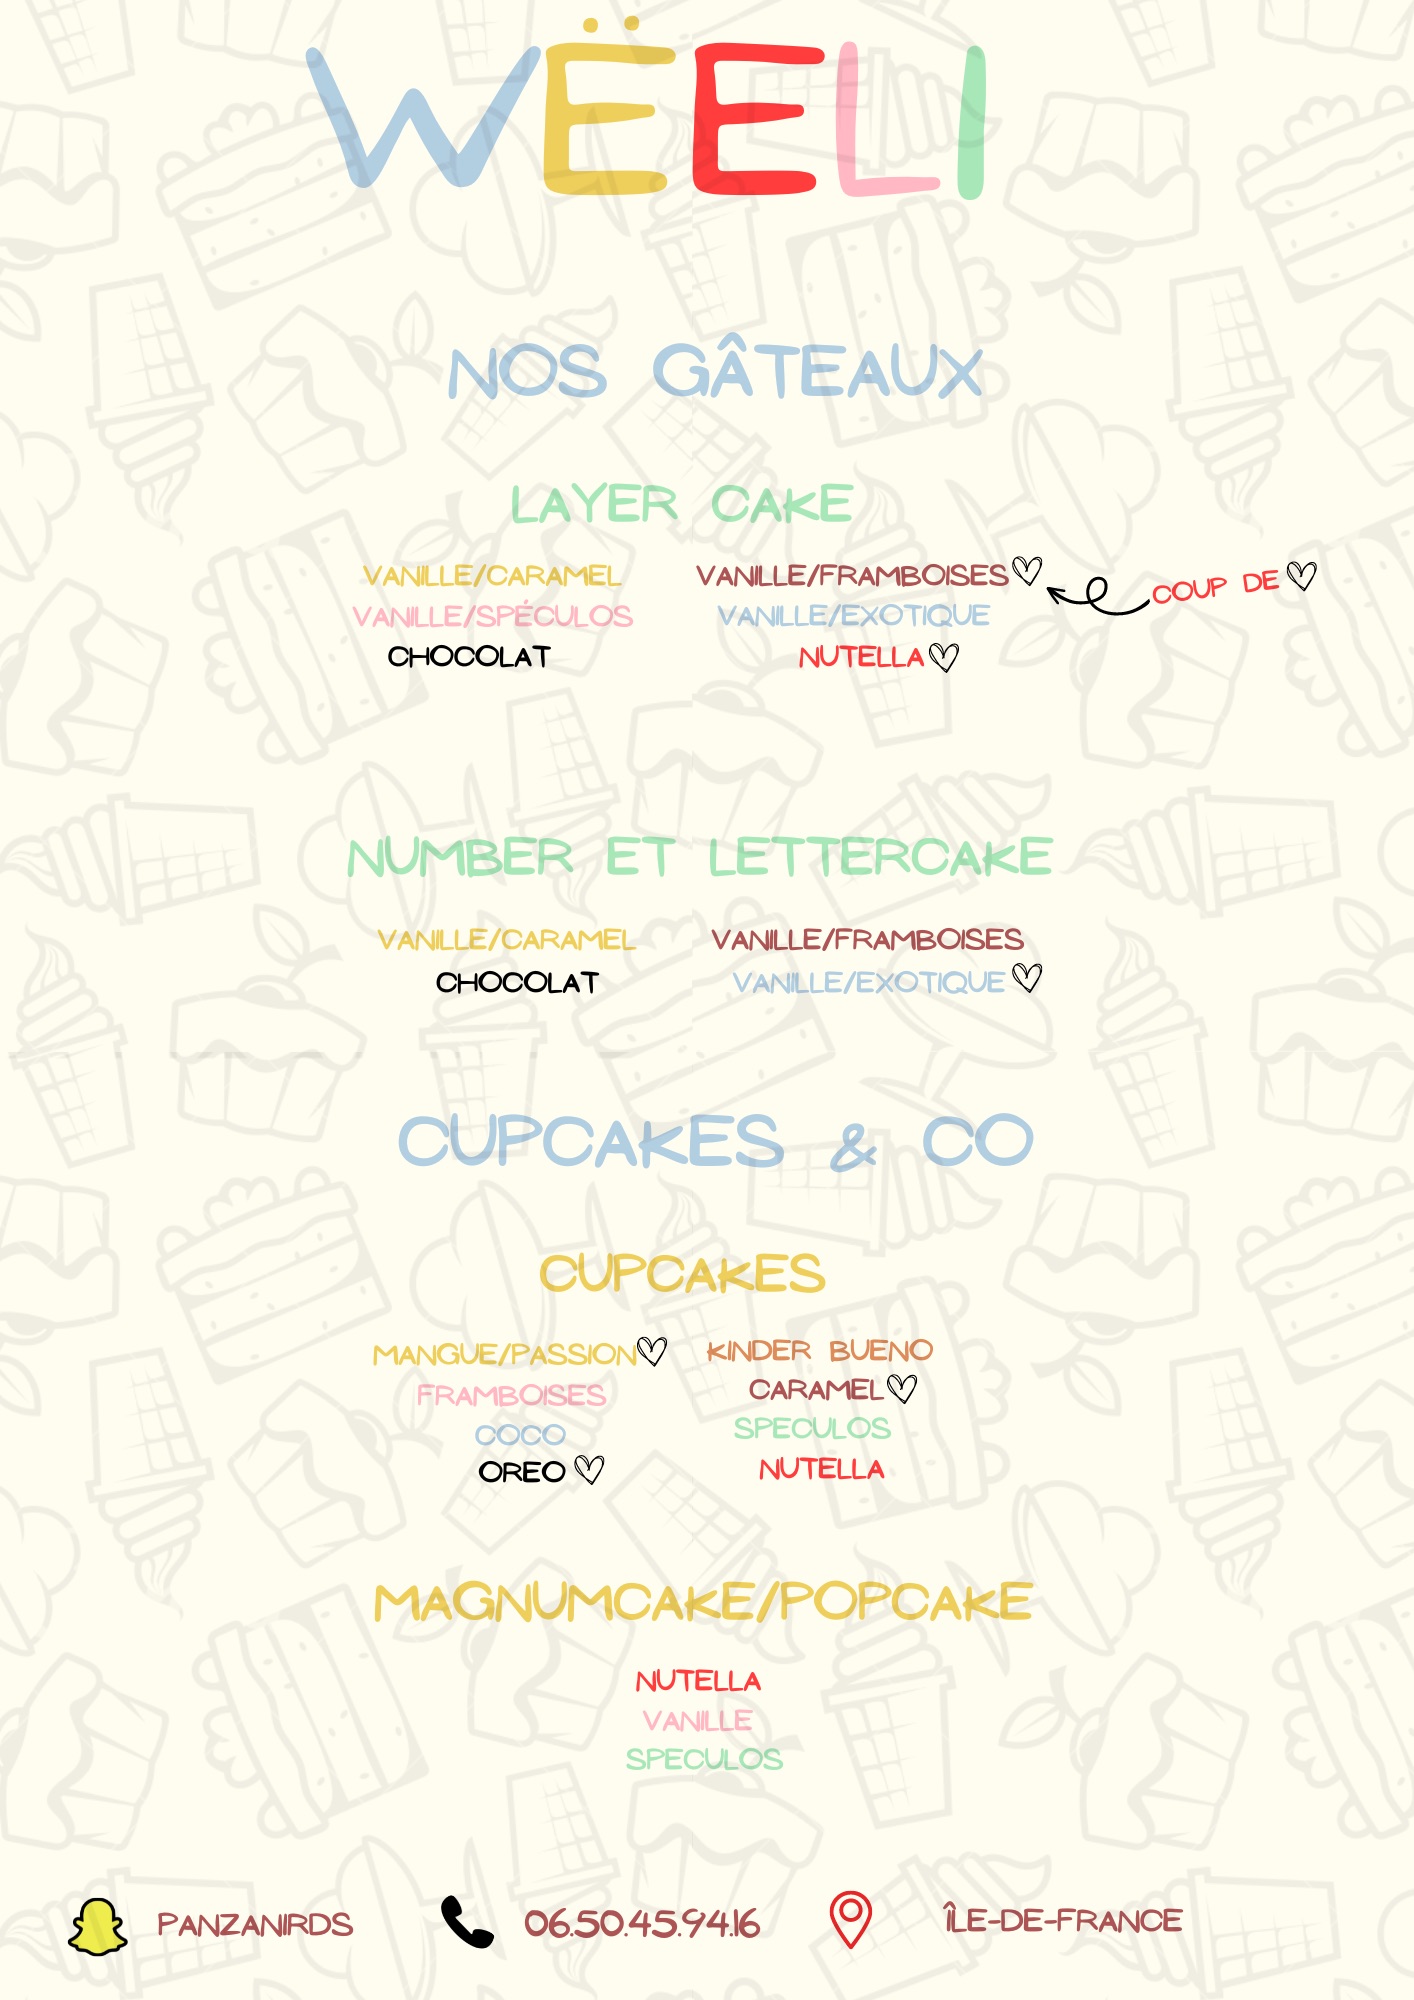 WËELI
NOS GÂTEAUX
LAYER CAKE
VANILLE/CARAMEL
VANILLE/SPÉCULOS
CHOCOLAT
VANILLE/FRAMBOISES
VANILLE/EXOTIQUE
NUTELLA
COUP DE
NUMBER ET LETTERCAKE
VANILLE/CARAMEL
CHOCOLAT
VANILLE/FRAMBOISES
VANILLE/EXOTIQUE
CUPCAKES & CO
CUPCAKES
MANGUE/PASSION
FRAMBOISES
COCO
OREO
KINDER BUENO
CARAMEL
SPECULOS
NUTELLA
MAGNUMCAKE/POPCAKE
NUTELLA
VANILLE
SPECULOS
PANZANIRDS
06.50.45.94.16
ÎLE-DE-FRANCE